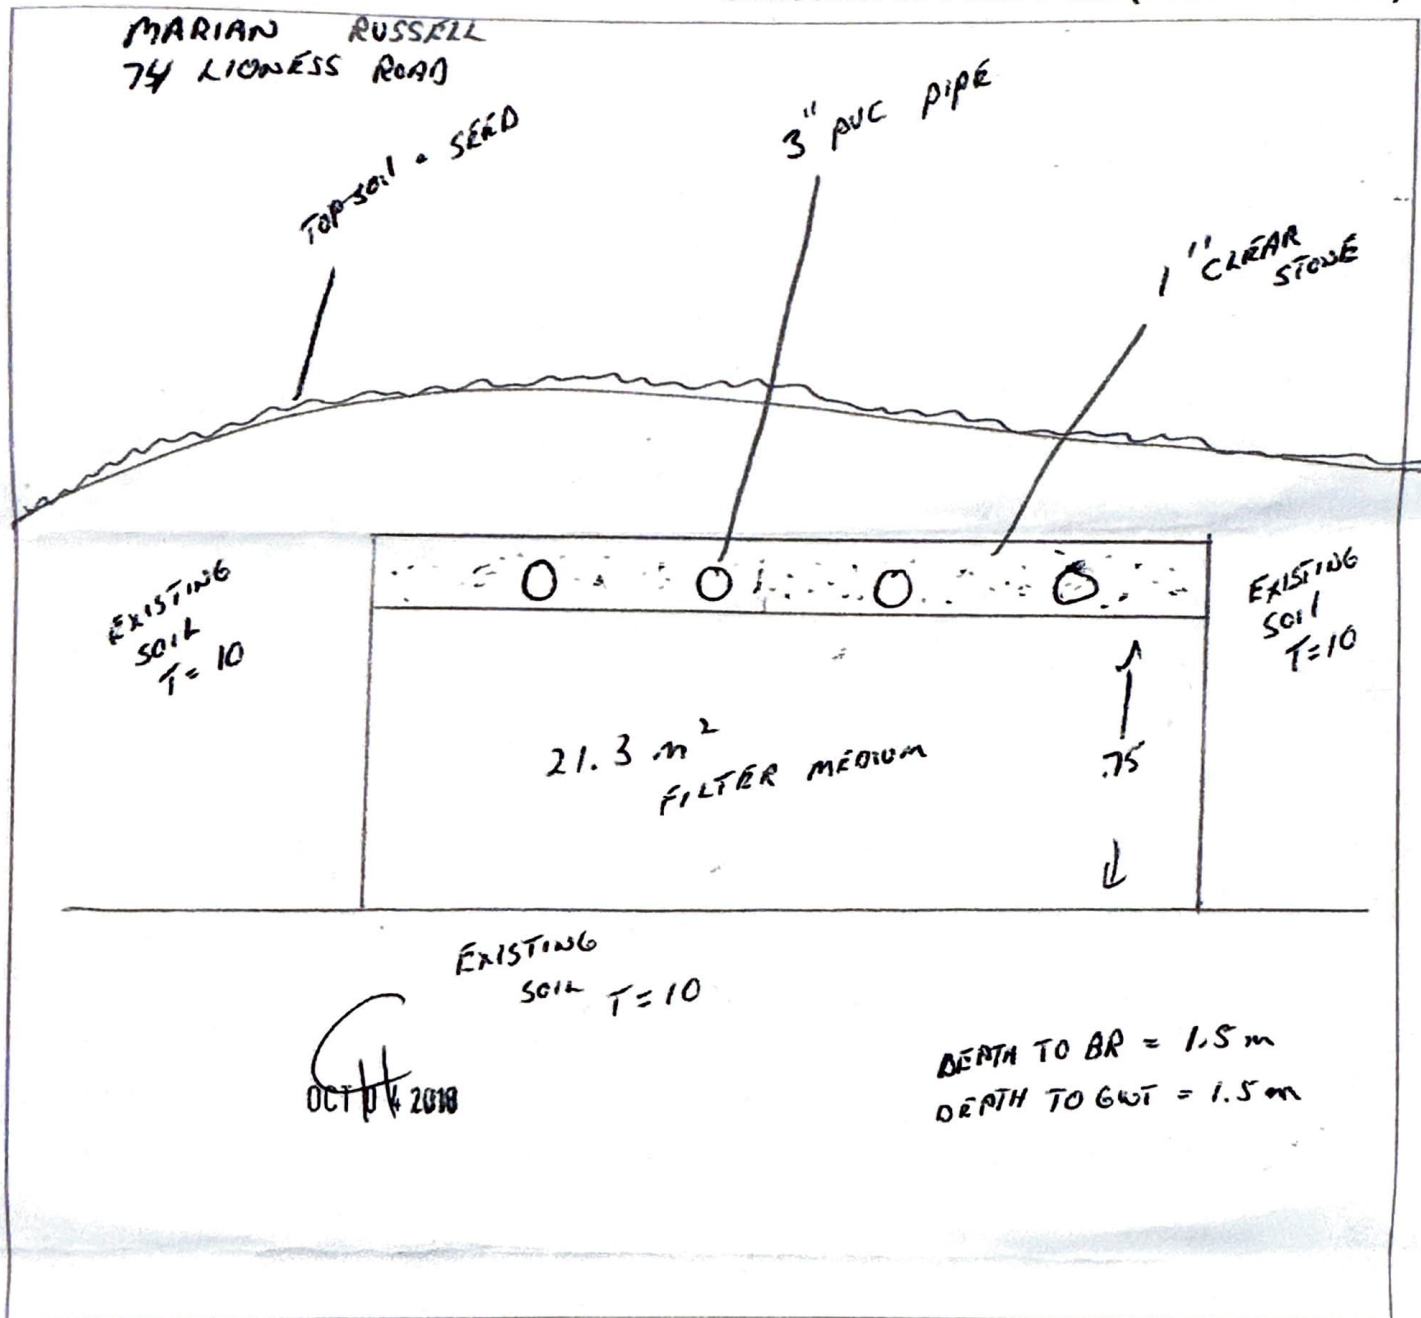 MARIAN RUSSELL
74 LIONESS ROAD
TOPSOIL • SEED
3" PVC PIPE
1" CLEAR
STONE
EXISTING
SOIL
T= 10
EXISTING
SOIL
T=10
21.3 m²
FILTER MEDIUM
.75
EXISTING
SOIL T=10
OCT 04 2018
DEPTH TO BR = 1.5m
DEPTH TO GWT = 1.5m